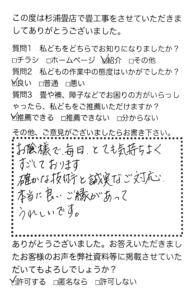 この度は杉浦畳店で畳工事をさせていただきま
してありがとうございました。
質問1 私どもをどちらでお知りになりましたか?
□チラシ □ホームページ ☑紹介 □その他
質問2 私どもの作業中の態度はいかがでしたか?
☑良い □普通 □悪い
質問3 畳や襖、障子などでお困りの方がいらっし
ゃったら、私どもをご推薦いただけますか?
☑推薦できる □推薦できない □分からない
その他、ご意見がございましたらお書き下さい。
お陰様で毎日、とても気持ちよく
すごしております
確かな技術と誠実なご対応
本当に良いご縁があって
うれしいです。
ありがとうございました。お答えいただきまし
たお客様のお声を弊社資料等に掲載させていた
だいてもよろしでしょうか?
☑許可する □匿名なら □許可しない